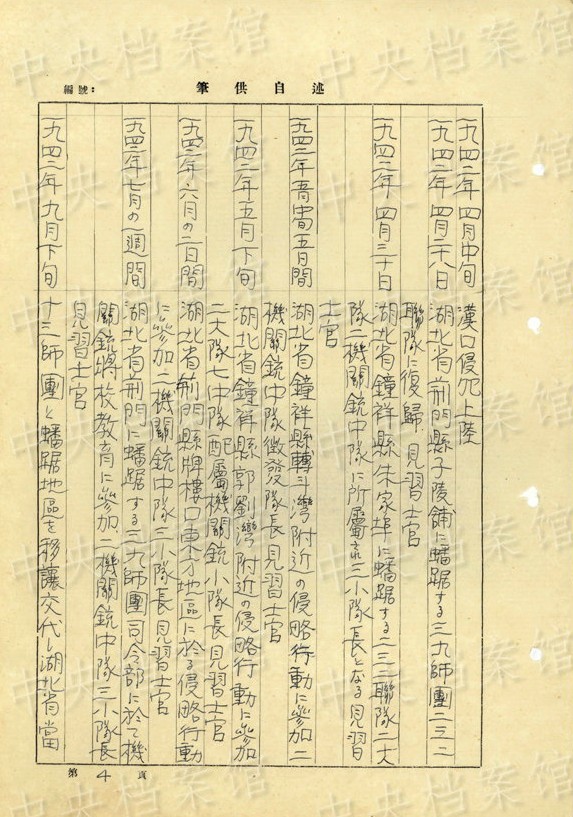 編號:
筆供自述
一九四二年 四月中旬 漢口侵犯上陸
一九四二年 四月二八日 湖北省荊門縣子陵舖に蟠踞する三九師團二三二
聯隊に復歸、見習士官
一九四二年 四月三十日 湖北省鐘祥縣朱家埠に蟠踞する二三二聯隊二大
隊二機關銃中隊に所屬 三小隊長となる 見習
士官
一九四二年 五月中旬五日間 湖北省鐘祥縣轉斗灣附近の侵略行動に參加 二
機關銃中隊徴發隊長 見習士官
一九四二年 五月下旬 湖北省鐘祥縣郭劉灣附近の侵略行動に參加
二大隊七中隊配屬機關銃小隊長 見習士官
一九四二年 六月の二日間 湖北省荊門縣牌樓口東方地區に於る侵略行動
に參加 二機關銃中隊三小隊長 見習士官
一九四二年 七月の一週間 湖北省荊門に蟠踞する三九師團司令部に於て機
關銃將校教育に參加、二機關銃中隊三小隊長
見習士官
一九四二年 九月下旬 十三師團と蟠踞地區を移讓交代し湖北省當
第 4 頁
中央档案馆